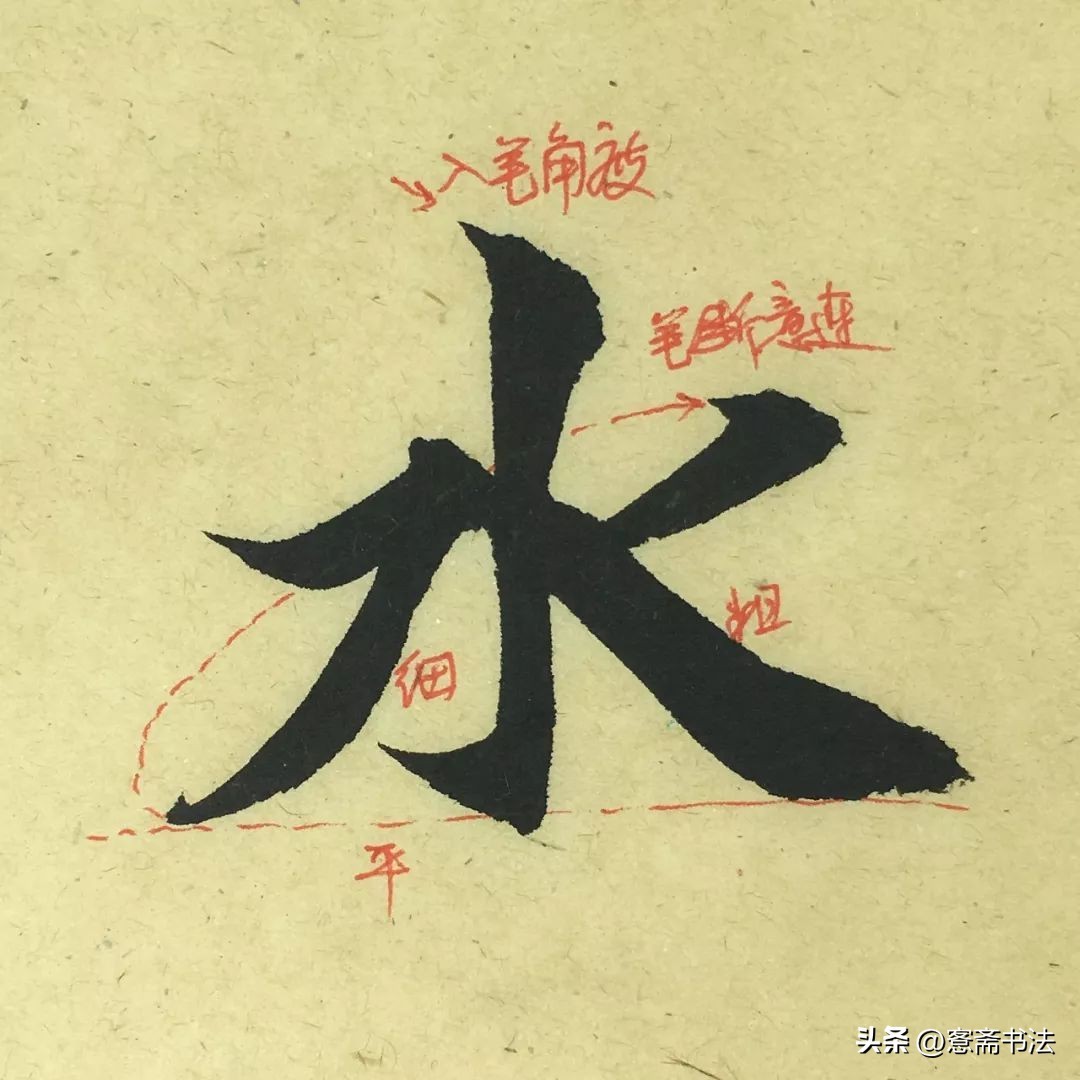 入笔角度
笔断意连
水
粗
细
平
头条 @骞斋书法